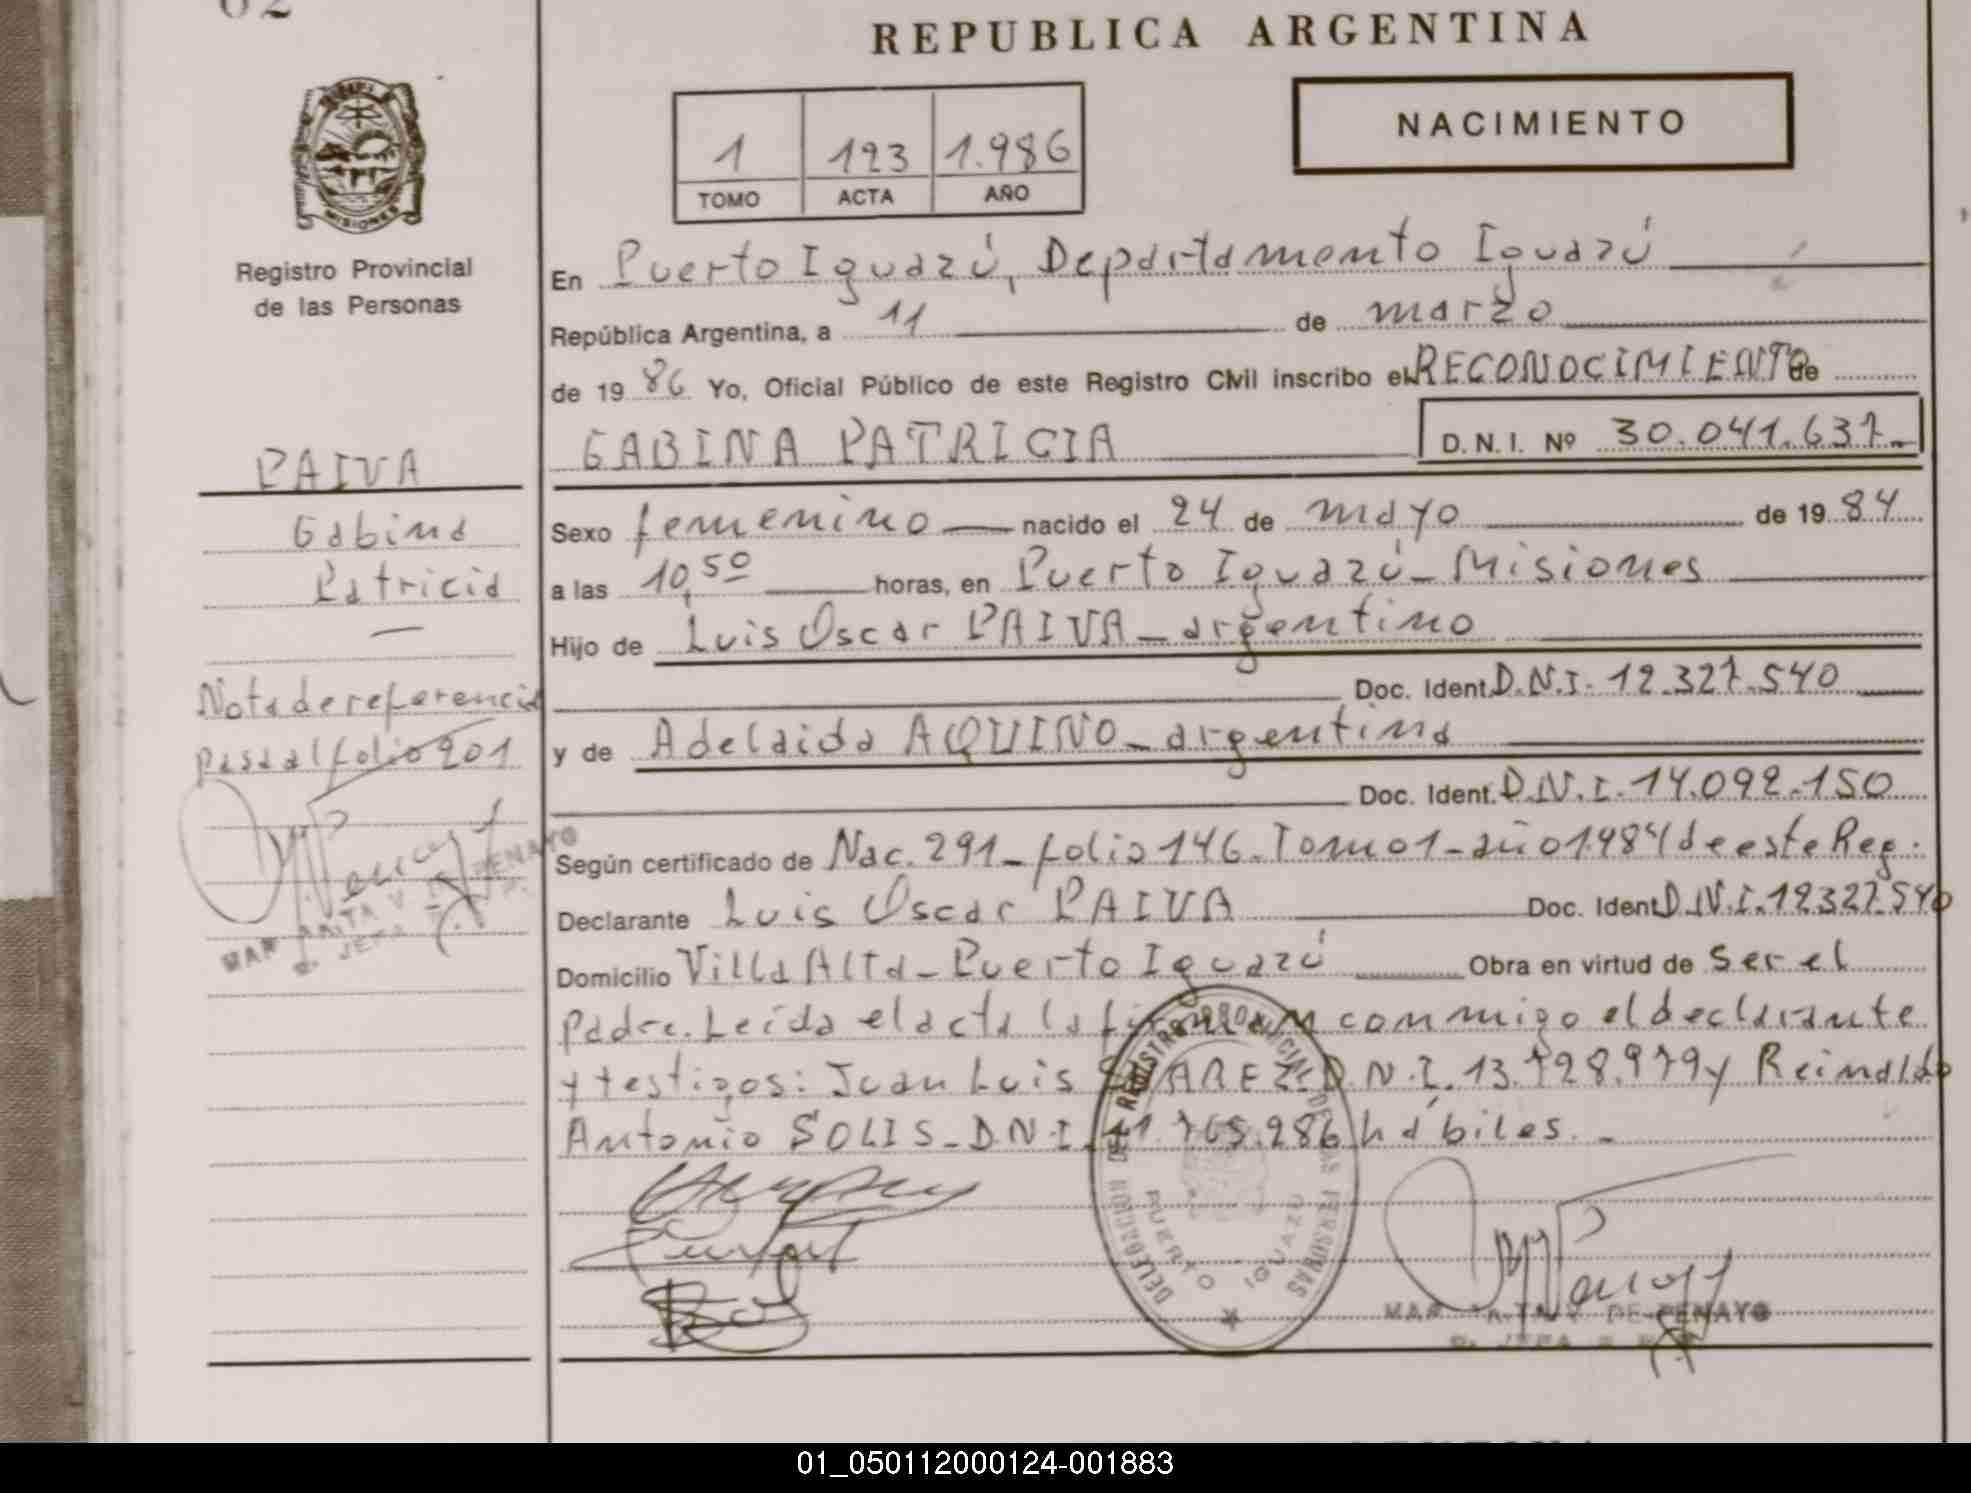 62
REPUBLICA ARGENTINA
NACIMIENTO
1 123 1.986
TOMO ACTA AÑO
MISIONES
Registro Provincial
de las Personas
PAIVA
Gabina
Patricia
Nota de referencia
pasa al folio 201
PENAYO
JEFA
En Puerto Iguazú, Departamento Iguazú
República Argentina, a 11 de marzo
de 19 86 Yo, Oficial Público de este Registro Civil inscribo el RECONOCIMIENTO de
GABINA PATRICIA D.N.I. Nº 30.041.637.-
Sexo femenino nacido el 24 de mayo de 19 84
a las 10,50 horas, en Puerto Iguazú - Misiones
Hijo de Luis Oscar PAIVA - argentino
Doc. Ident. D.N.I. 12.327.540
y de Adelaida AQUINO - argentina
Doc. Ident. D.N.I. 14.092.150
Según certificado de Nac. 291 - folio 146 - Tomo 1 - año 1984 de este Reg.
Declarante Luis Oscar PAIVA Doc. Ident. D.N.I. 12.327.540
Domicilio Villa Alta - Puerto Iguazú Obra en virtud de ser el
padre. Leída el acta la firman conmigo el declarante
y testigos: Juan Luis D.N.I. 13. y Reinaldo
Antonio SOLIS - D.N.I. hábiles. -
DELEGACION DEL REGISTRO PROVINCIAL DE LAS PERSONAS
PUERTO IGUAZU
DE PENAYO
01_050112000124-001883